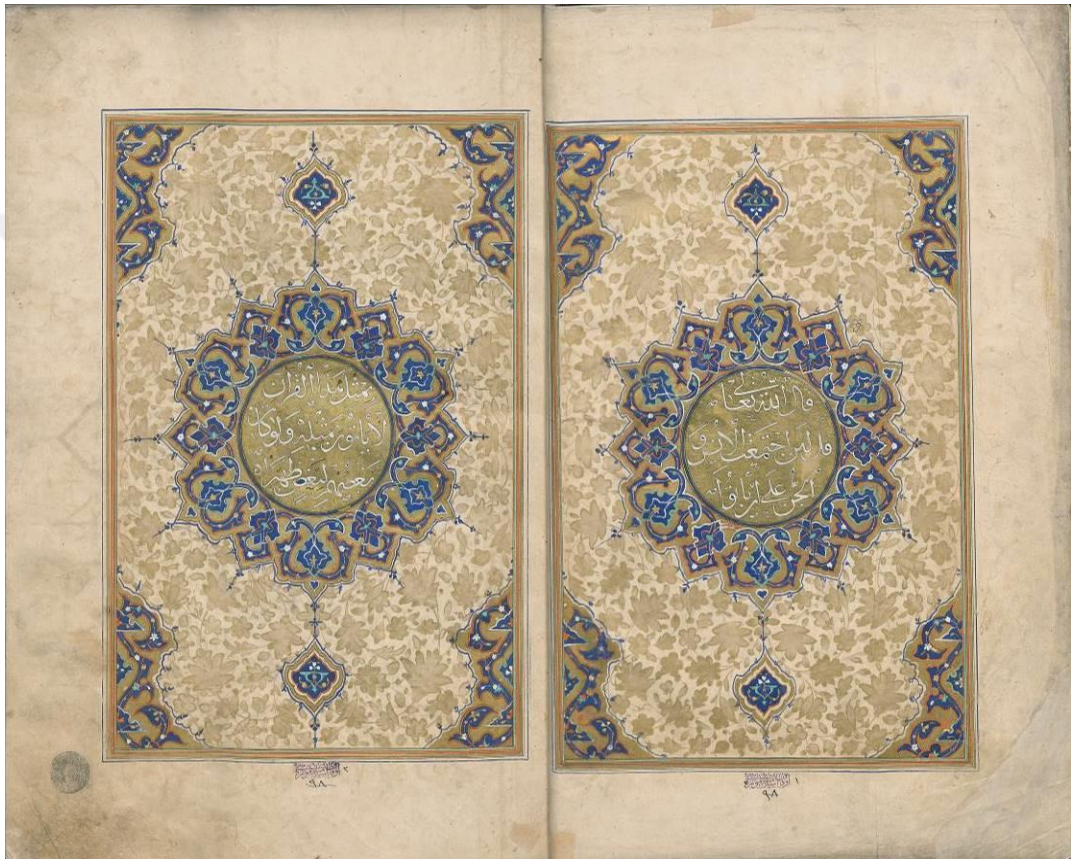 قال الله تعالى
قل لئن اجتمعت الانس و
الجن على ان ياتوا
١
٩٨
بمثل هذا القران
لا ياتون بمثله ولو كان
بعضهم لبعض ظهيرا
٢
٩٨